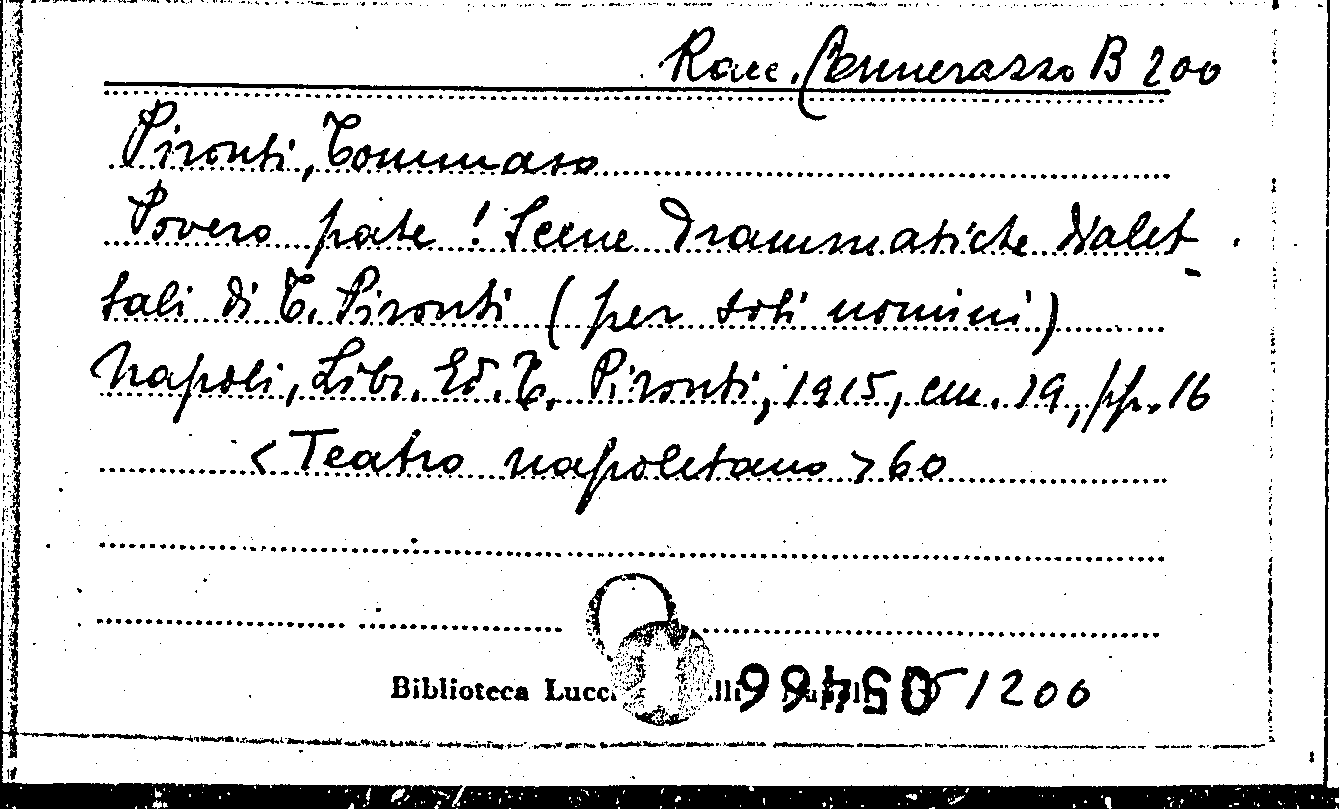 Racc. Cennerazzo B 200
Pironti, Tommaso
Povero pate! Scene drammatiche dialet-
tali di T. Pironti (per soli uomini)
Napoli, Libr. Ed. T. Pironti, 1915, cm. 19, pp. 16
<Teatro napoletano> 60
Biblioteca Lucc
05466 1200